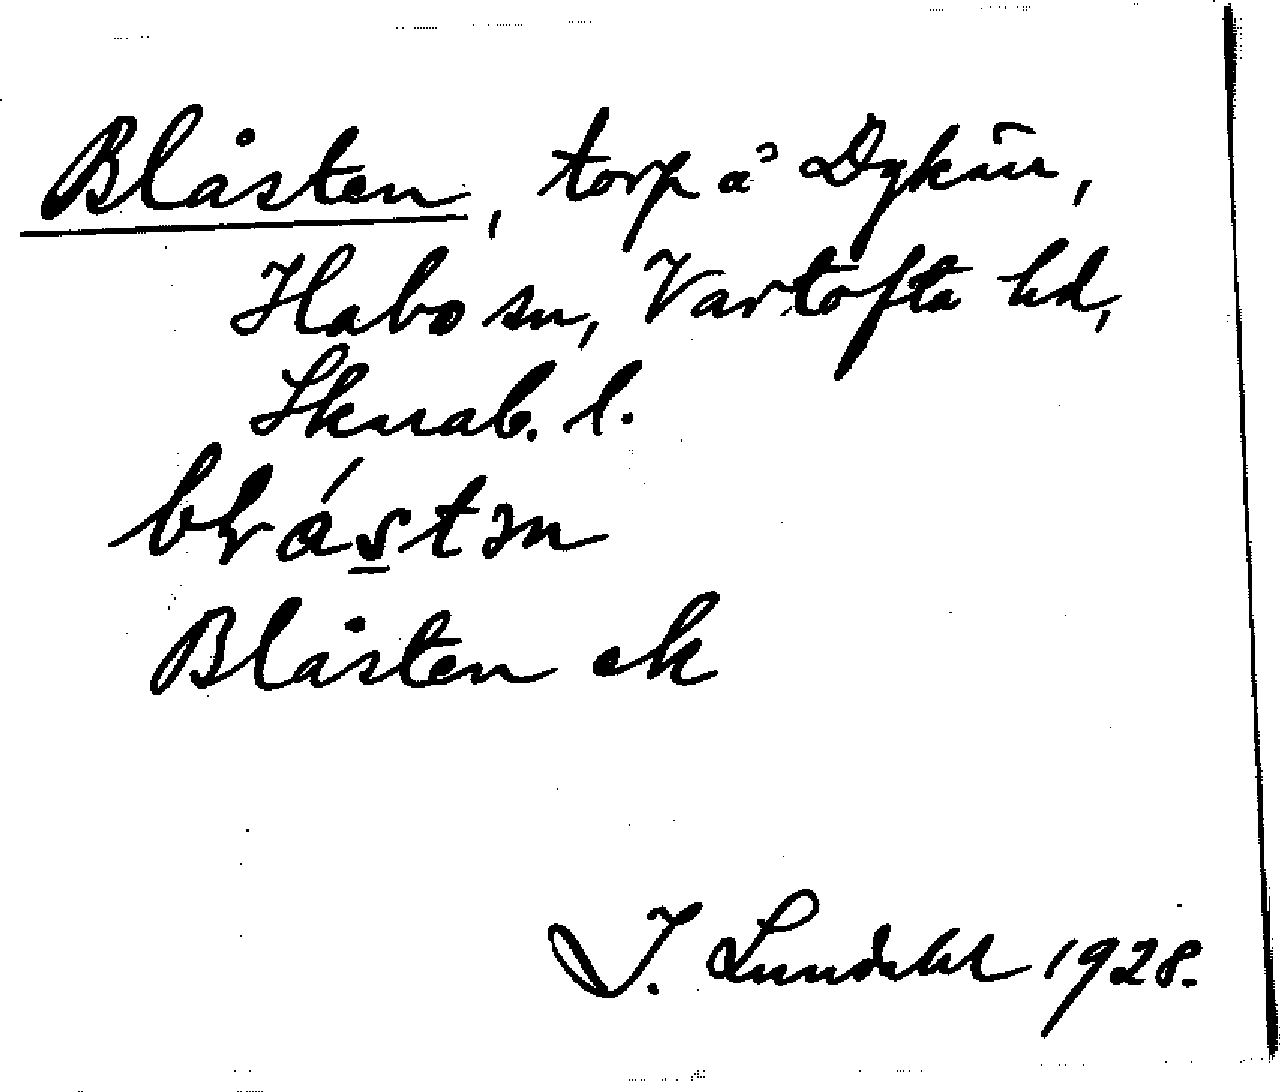 Blåsten, torp å Dykärr,
Habo sn, Vartofta hd,
Skarab. l.
blåstən
Blåsten ek
I. Lundahl 1928.